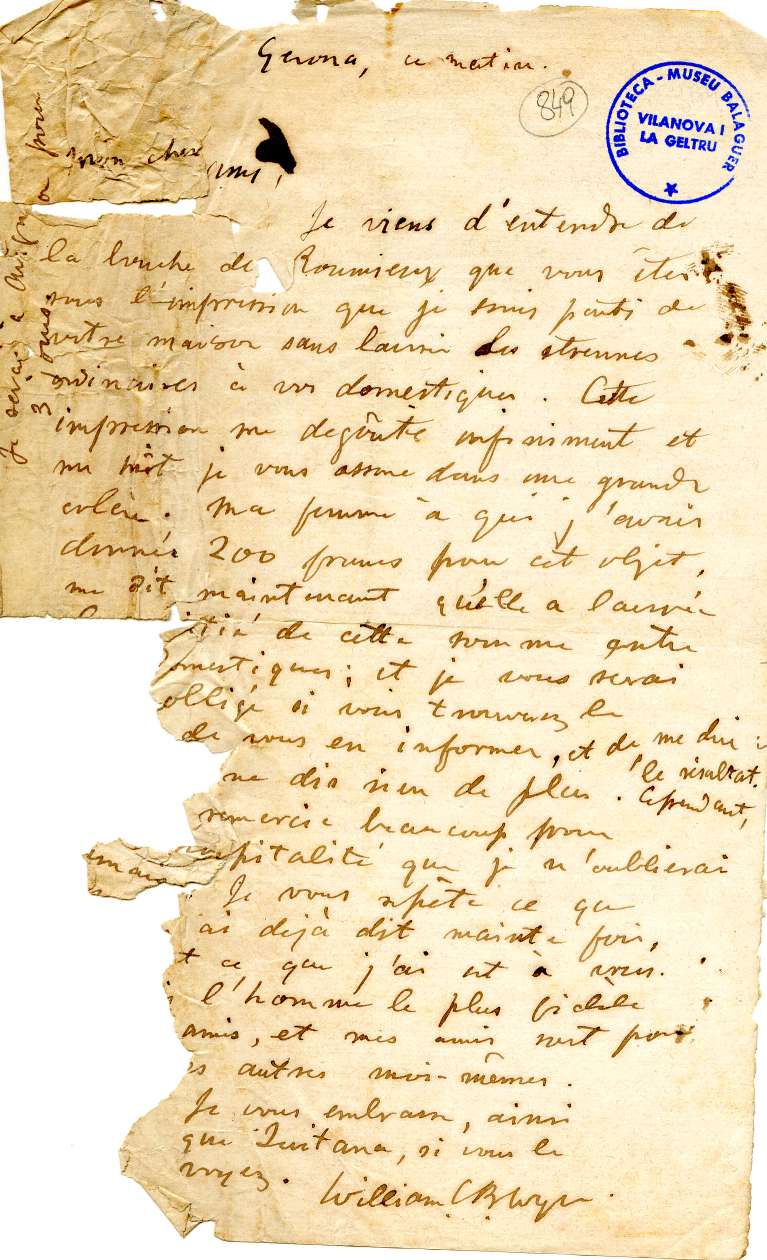 Gerona, ce matin.
849
BIBLIOTECA - MUSEU BALAGUER
VILANOVA I
LA GELTRU
Mon cher ami,
Je viens d'entendre de
la bouche de Roumieux que vous êtes
sous l'impression que je suis parti de
votre maison sans laisser les étrennes
ordinaires à vos domestiques. Cette
impression me dégoûte infiniment et
me met je vous assure dans une grande
colère. Ma femme à qui j'avais
donnés 200 francs pour cet objet,
me dit maintenant qu'elle a laissée
itié de cette somme entre
omestiques; et je vous serai
obligé si vous trouverez le
de vous en informer, et de me dire
le résultat.
ne dis rien de plus. Cependant,
remercie beaucoup pour
ospitalité que je n'oublierai
Je vous répète ce que
ai déjà dit mainte fois,
t ce que j'ai est à vous.
l'homme le plus fidèle
amis, et mes amis sont pour
s autres moi-mêmes.
Je vous embrasse, ainsi
que Quitana, si vous le
voyez.
William C B Wyse.
Je serai à pour
3 jours